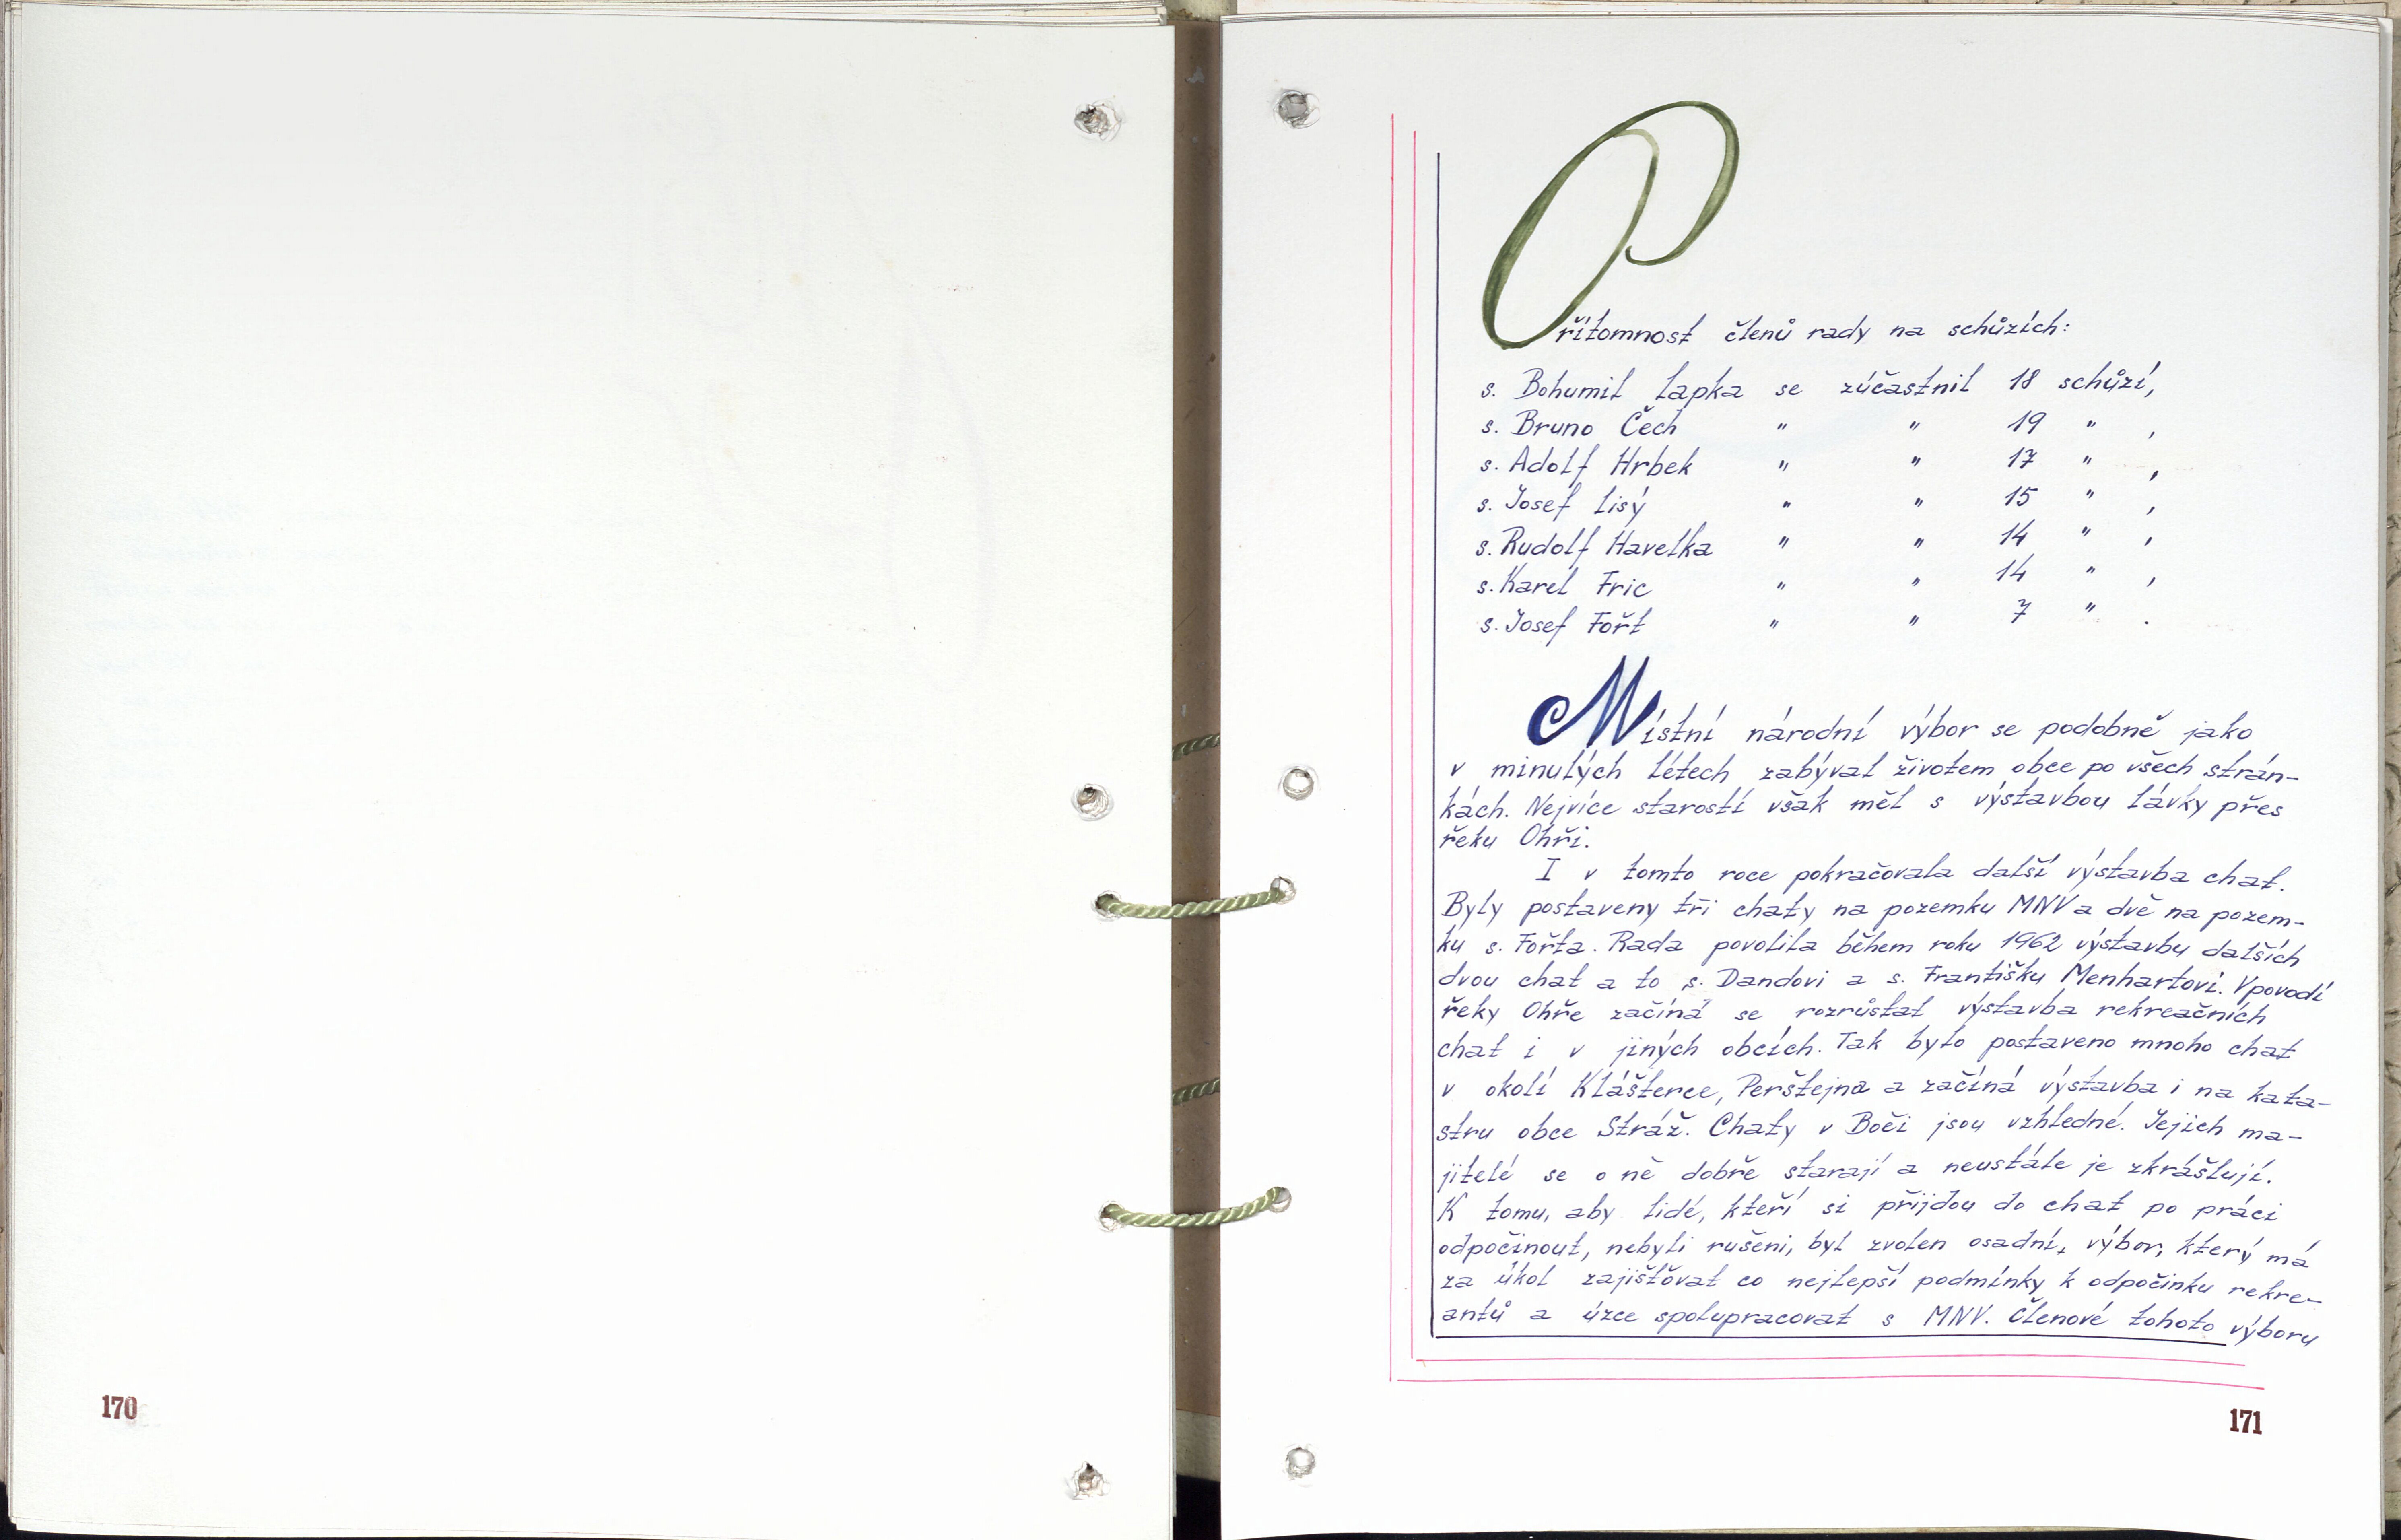 170
Přítomnost členů rady na schůzích:
s. Bohumil Lapka se zúčastnil 18 schůzí,
s. Bruno Čech " " 19 " ,
s. Adolf Hrbek " " 17 " ,
s. Josef Lisý " " 15 " ,
s. Rudolf Havelka " " 14 " ,
s. Karel Fric " " 14 " ,
s. Josef Fořt " " 7 " .
Místní národní výbor se podobně jako
v minulých létech zabýval životem obce po všech strán-
kách. Nejvíce starostí však měl s výstavbou lávky přes
řeku Ohři.
I v tomto roce pokračovala další výstavba chat.
Byly postaveny tři chaty na pozemku MNV a dvě na pozem-
ku s. Fořta. Rada povolila během roku 1962 výstavbu dalších
dvou chat a to s. Dandovi a s. Františku Menhartovi. V povodí
řeky Ohře začíná se rozrůstat výstavba rekreačních
chat i v jiných obcích. Tak bylo postaveno mnoho chat
v okolí Klášterce, Perštejna a začíná výstavba i na kata-
stru obce Stráž. Chaty v Boči jsou vzhledné. Jejich ma-
jitelé se o ně dobře starají a neustále je zkrášlují.
K tomu, aby lidé, kteří si přijdou do chat po práci
odpočinout, nebyli rušeni, byl zvolen osadní výbor, který má
za úkol zajišťovat co nejlepší podmínky k odpočinku rekre-
antů a úzce spolupracovat s MNV. Členové tohoto výboru
171